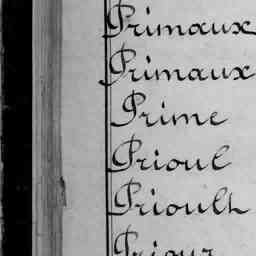 Primaux
Primaux
Prime
Prioul
Prioult
Prioux